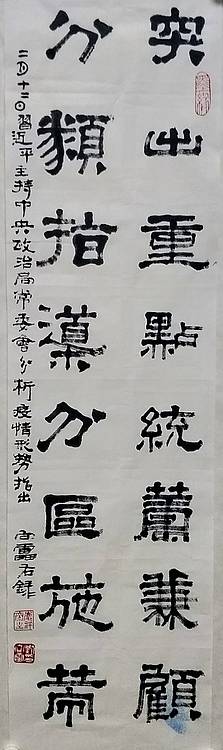 突出重點統籌兼顧
分類指導分區施策
二月十二日習近平主持中央政治局常委會分析疫情形勢指出